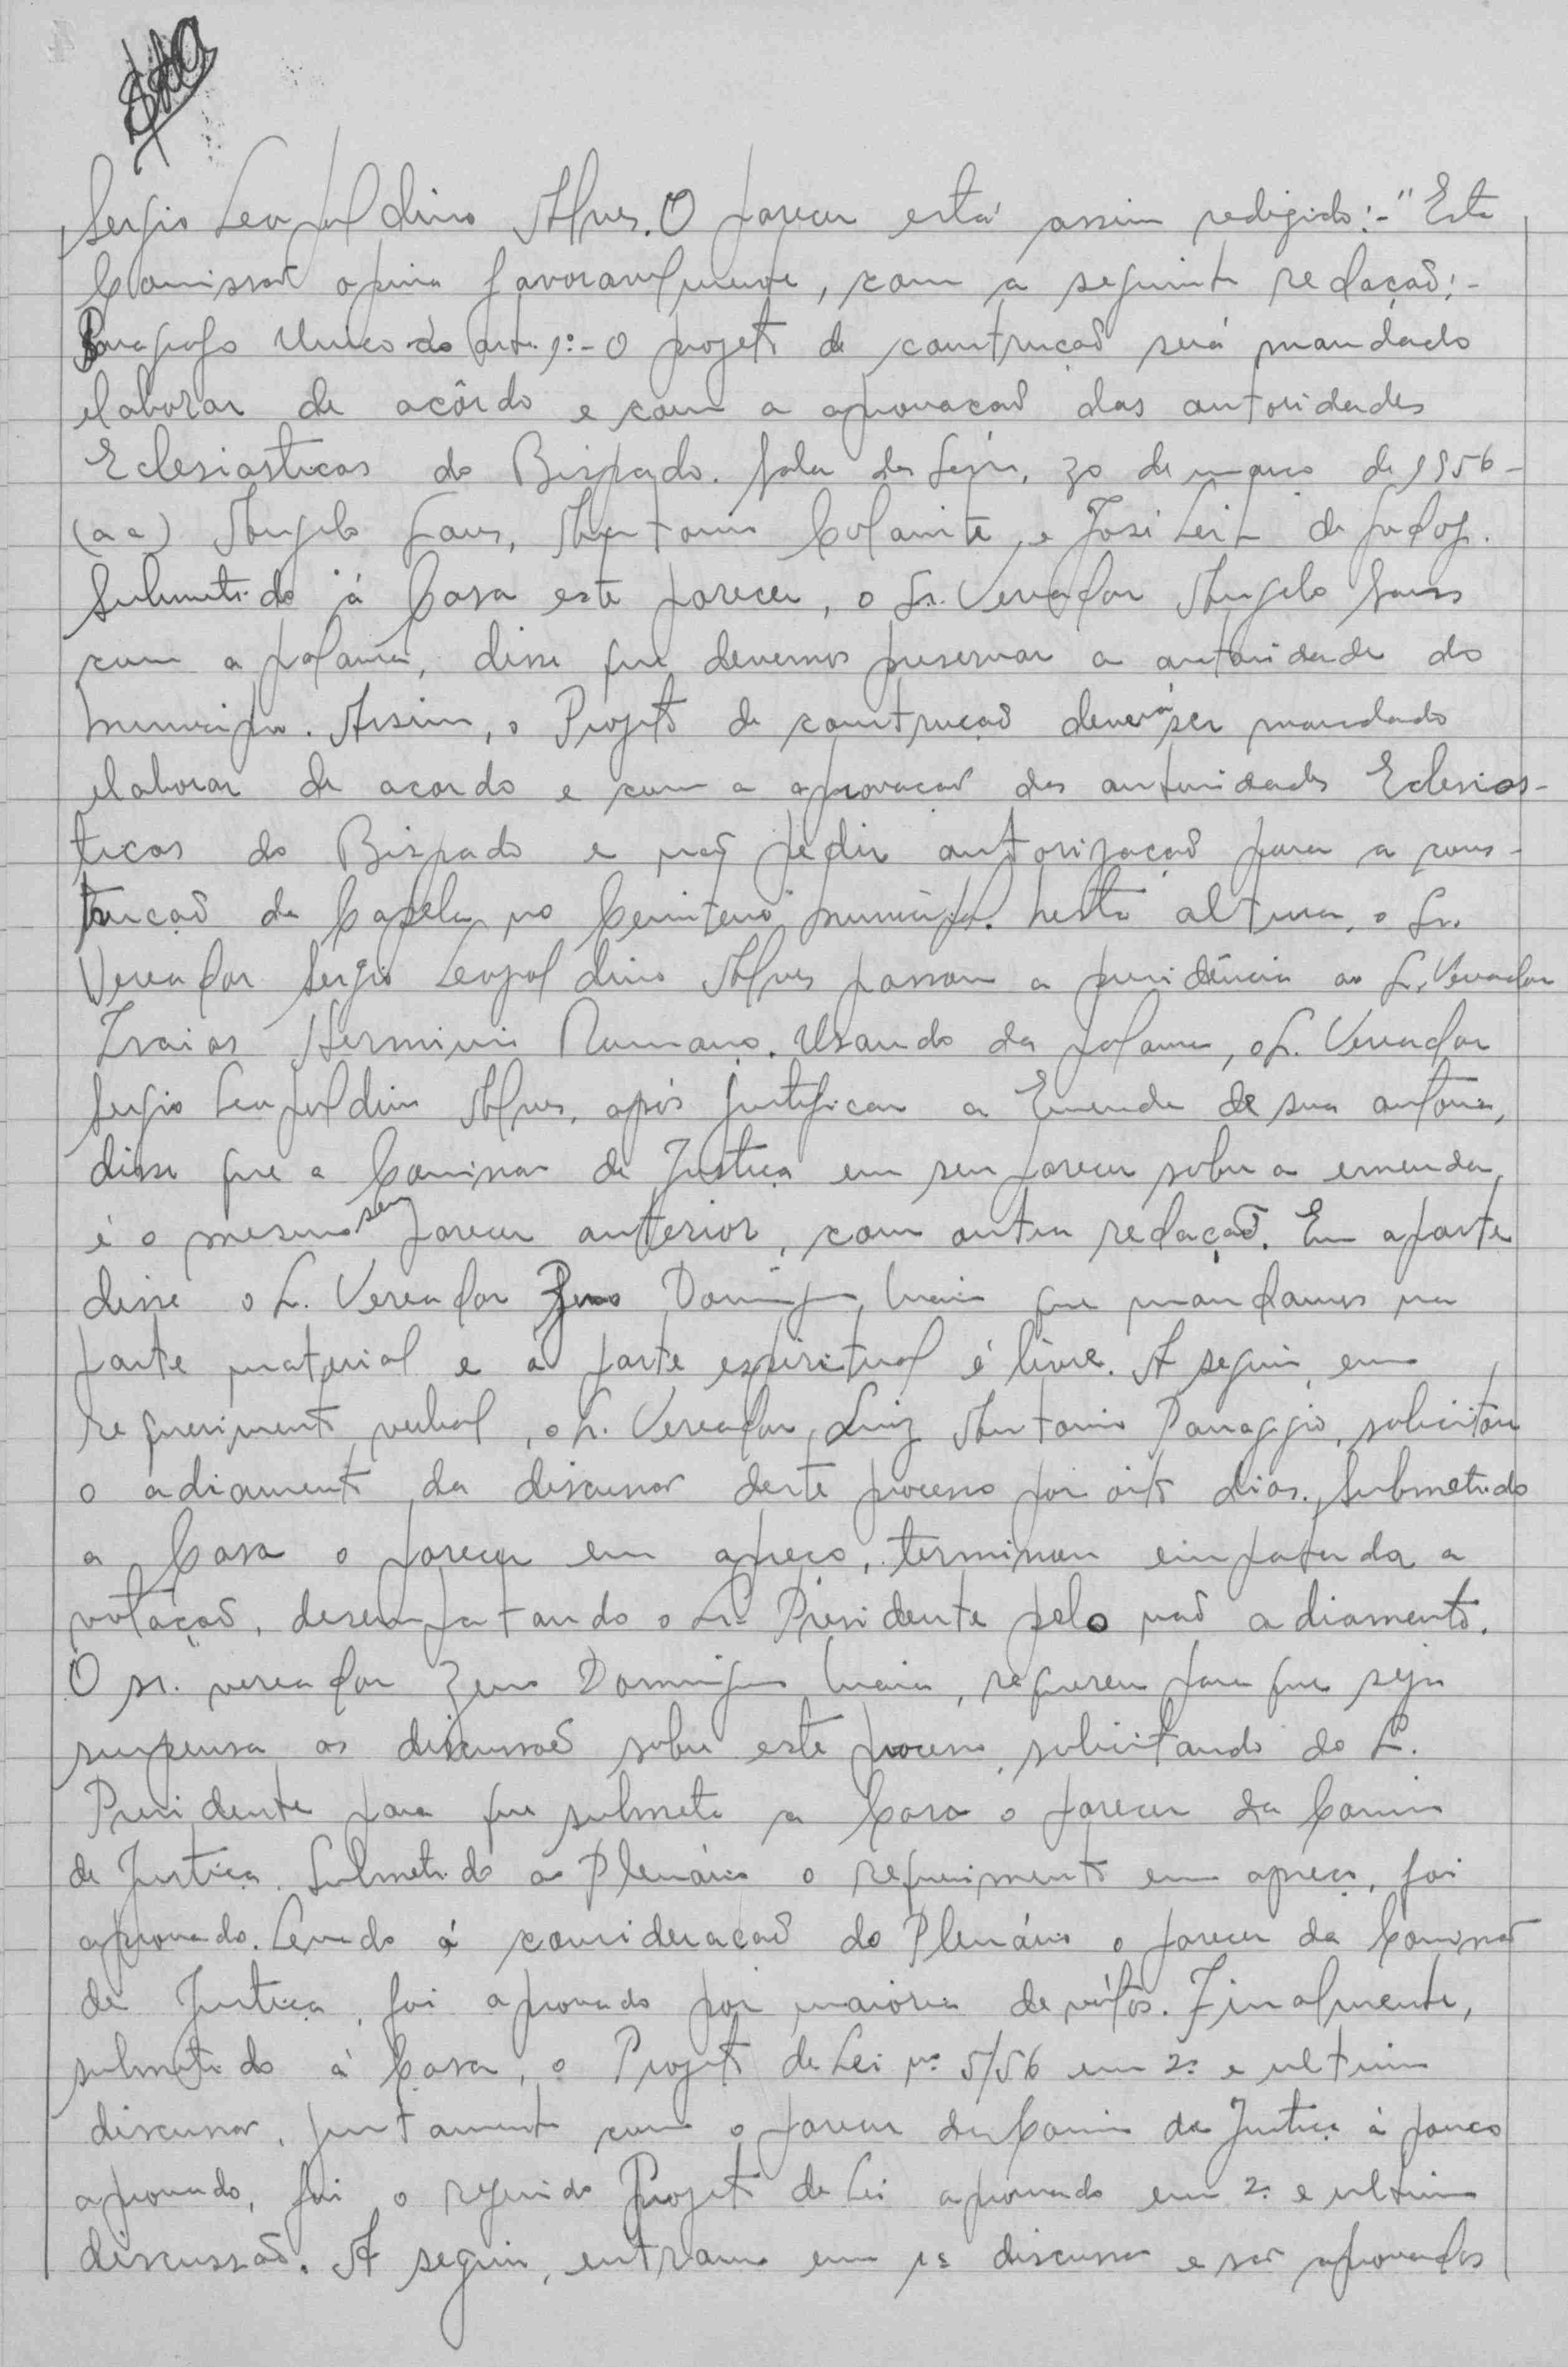 Sergio Leopoldino Alves. O parecer está assim redigido:- "Esta
Comissão opina favoravelmente, com a seguinte redação:-
Paragrafo Unico do art. 1º:- O projeto de construção será mandado
elaborar de acôrdo e com a aprovação das autoridades
Eclesiasticas do Bispado. Sala das Sessões, 30 de março de 1956-
(aa) Angelo Antonio e José Leite de
Submetido á Casa este parecer, o Sr. Vereador Angelo
com a palavra, disse que devemos preservar a autoridade do
Municipio. Assim, o Projeto de construção deverá ser mandado
elaborar de acordo e com a aprovação das autoridades Eclesias-
ticas do Bispado e não pedir autorização para a cons-
trução da Capela no Cemiterio municipal. Nesta altura, o Sr.
Vereador Sergio Leopoldino Alves passou a presidência ao Sr. Vereador
Izaias Herminio Romano. Usando da palavra, o Sr. Vereador
Sergio Leopoldino Alves, após justificar a Emenda de sua autoria,
disse que a Comissão de Justiça em seu parecer sobre a emenda,
é o mesmo seu parecer anterior, com outra redação. Em aparte
disse o Sr. Vereador Zeno Domingues Maia que mandamos na
parte material e a parte espiritual é livre. A seguir, em
requerimento verbal, o Sr. Vereador Luiz Antonio Panaggio, solicitou
o adiamento da discussão deste processo por oito dias. Submetido
a Casa o parecer em apreço, terminou empatada a
votação, desempatando o Sr. Presidente pelo não adiamento.
O sr. vereador Zeno Domingues Maia, requereu para que seja
suspensa as discussões sobre este processo, solicitando do Sr.
Presidente para que submeta a Casa o parecer da Comissão
de Justiça. Submetido ao Plenário o requerimento em apreço, foi
aprovado. Levado á consideração do Plenário o parecer da Comissão
de Justiça, foi aprovado por maioria de vótos. Finalmente,
submetido á Casa, o Projeto de Lei nº 5/56 em 2ª e ultima
discussão, juntamente com o parecer da Comissão de Justiça á pouco
aprovado, foi o referido Projeto de Lei aprovado em 2ª e ultima
discussão. A seguir, entram em 1ª discussão e são aprovados